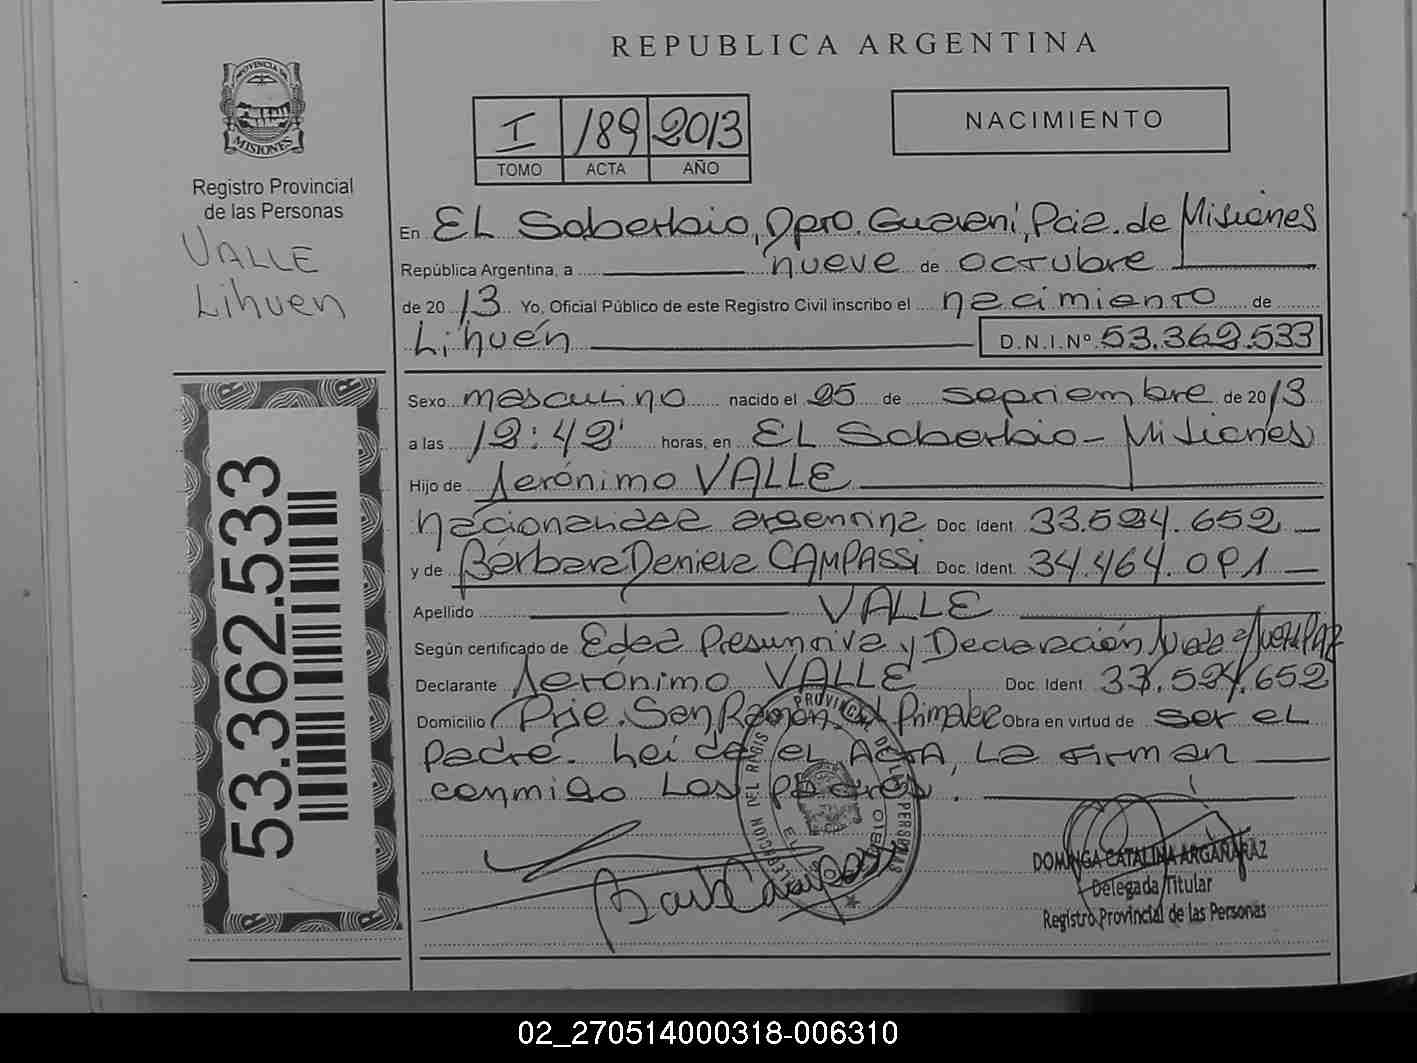 REPUBLICA ARGENTINA
PROVINCIA DE
MISIONES
Registro Provincial
de las Personas
VALLE
Lihuen
I 189 2013
TOMO ACTA AÑO
NACIMIENTO
En EL Soberbio, Dpto. Guaraní, Pcia. de Misiones
República Argentina, a nueve de octubre
de 2013 Yo, Oficial Público de este Registro Civil inscribo el nacimiento de
Lihuén D.N.I.Nº 53.362.533
Sexo masculino nacido el 25 de septiembre de 2013
a las 12:42' horas, en EL Soberbio - Misiones
Hijo de Jerónimo VALLE
nacionalidad argentina Doc. Ident. 33.524.652
y de Bárbara Daniela CAMPASSI Doc. Ident. 34.464.091
Apellido VALLE
Según certificado de Edad Presuntiva y Declaración Jurada
Declarante Jerónimo VALLE Doc. Ident. 33.524.652
Domicilio Pje. San Ramón, Primavera Obra en virtud de ser el
padre. Leída el ACTA, La firman
conmigo Los padres.
53.362.533
DOMINGA CATALINA ARGAÑARAZ
Delegada Titular
Registro Provincial de las Personas
02_270514000318-006310